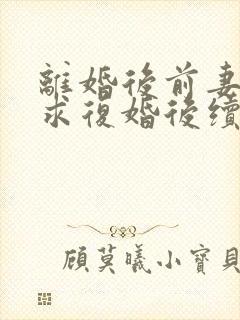 離婚後前妻
求復婚後續
顧莫曦小寶貝